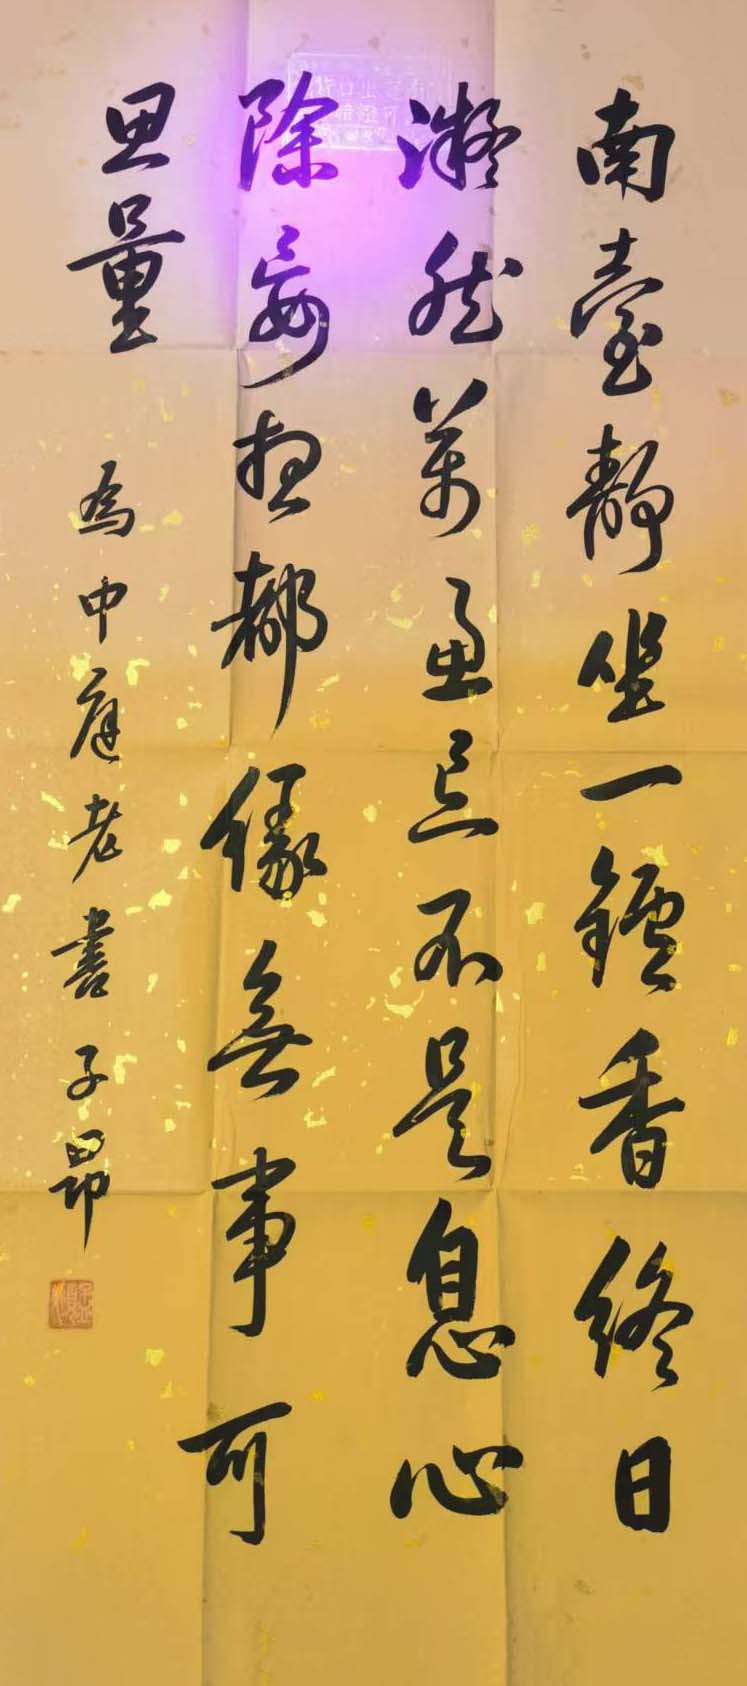 南臺靜坐一鑪香終日
凝然萬慮忘不是息心
除妄想都緣無事可
思量
為中庭老書子昂